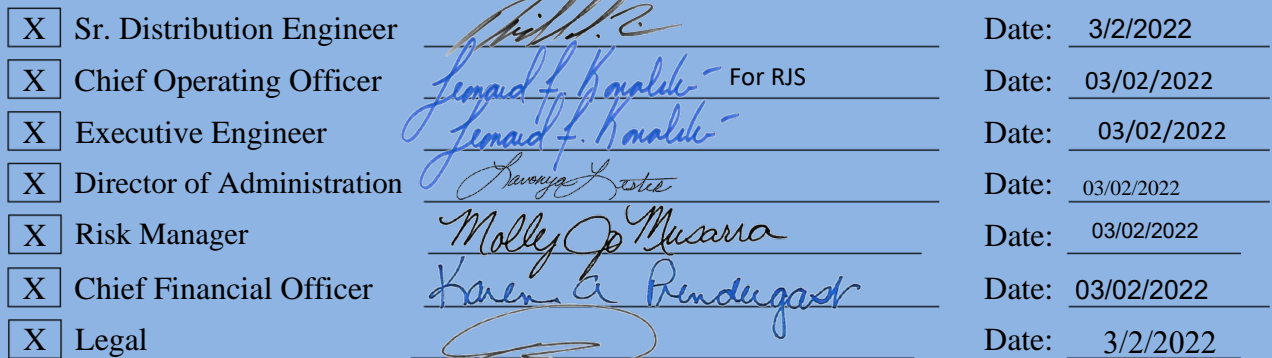 X Sr. Distribution Engineer Date: 3/2/2022
X Chief Operating Officer Leonard F. Kowalski For RJS Date: 03/02/2022
X Executive Engineer Leonard F. Kowalski Date: 03/02/2022
X Director of Administration Date: 03/02/2022
X Risk Manager Molly Jo Musarra Date: 03/02/2022
X Chief Financial Officer Karen A Prendergast Date: 03/02/2022
X Legal Date: 3/2/2022